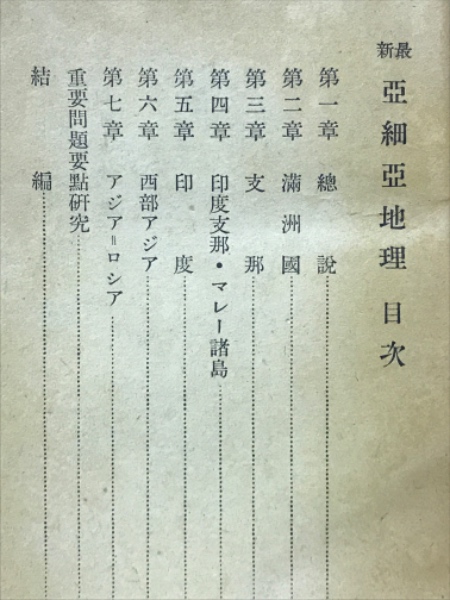 最新 亞細亞地理 目次
第一章 總說
第二章 滿洲國
第三章 支那
第四章 印度支那・マレー諸島
第五章 印度
第六章 西部アジア
第七章 アジア=ロシア
重要問題要點硏究
結編